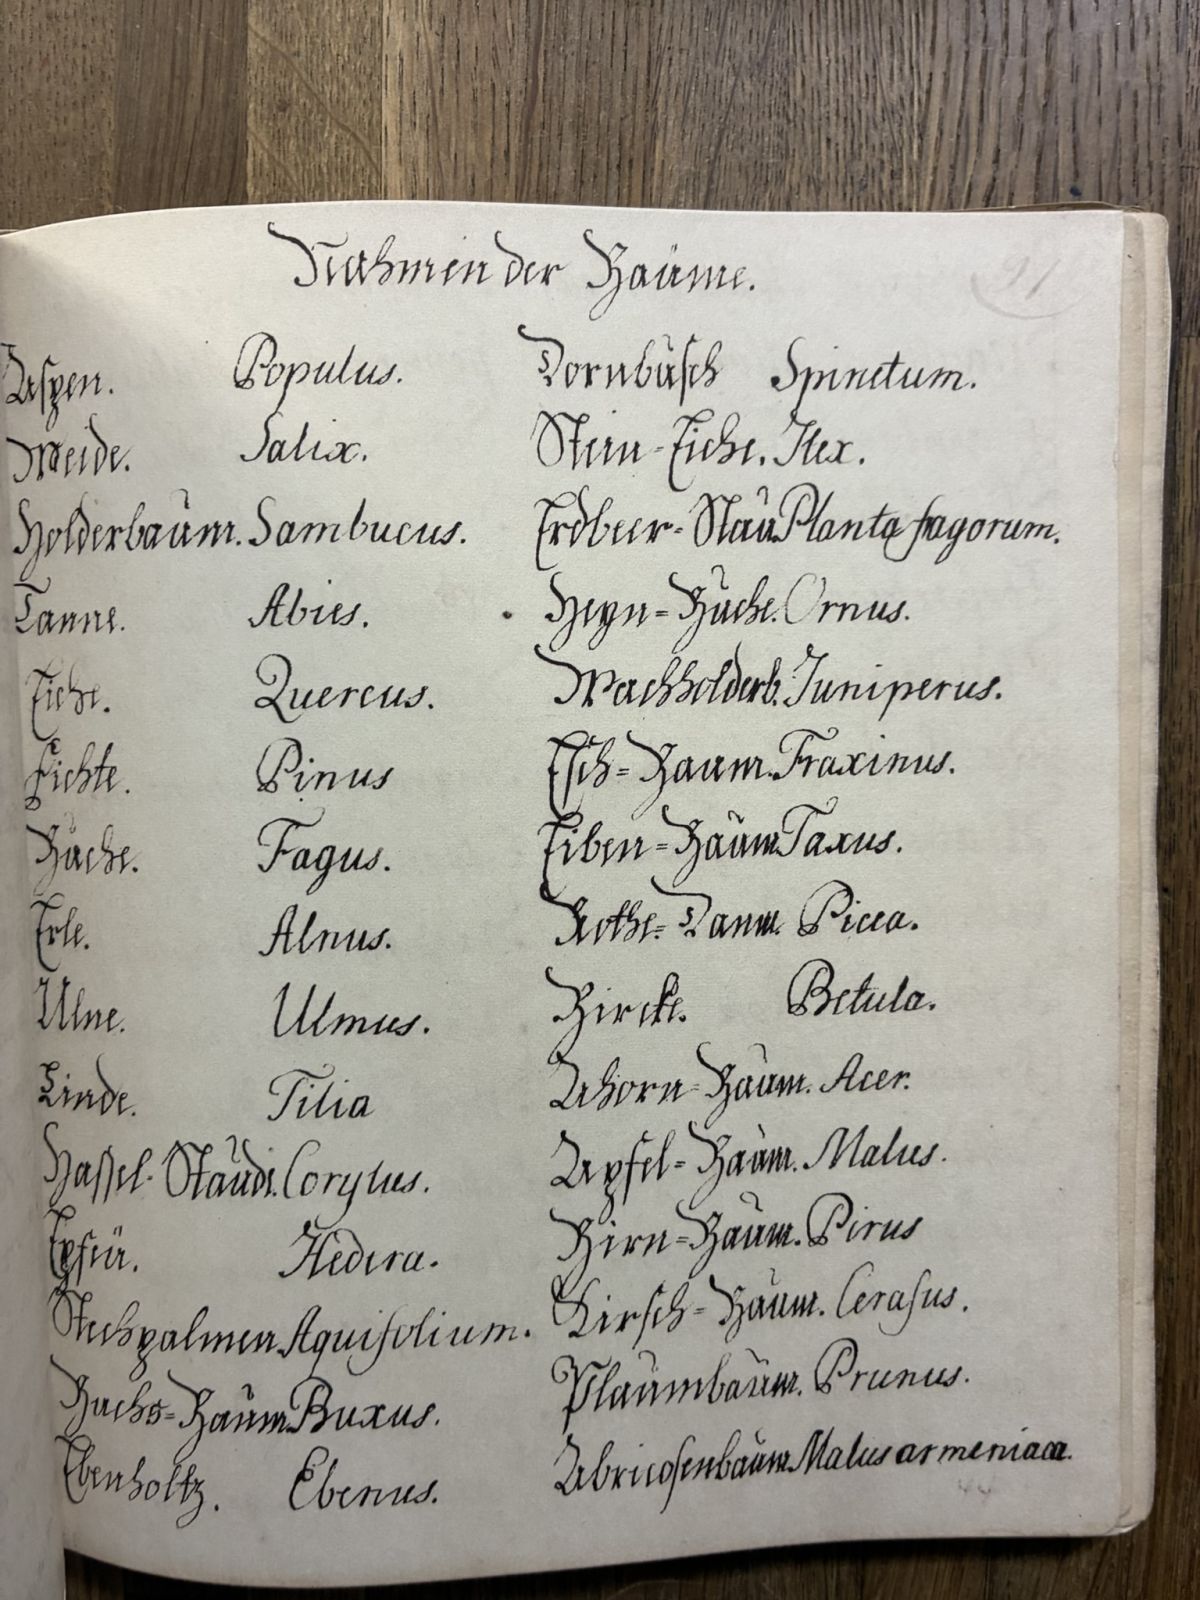 Nahmen der Baüme.
91
Aspen. Populus.
Weide. Salix.
Holderbaum. Sambucus.
Tanne. Abies.
Eiche. Quercus.
Fichte. Pinus
Buche. Fagus.
Erle. Alnus.
Ulne. Ulmus.
Linde. Tilia
Hassel-Staude. Corylus.
Epheu. Hedera.
Stechpalmen Aquifolium.
Buchs=Baum Buxus.
Ebenholtz. Ebenus.
Dornbusch Spinetum.
Stein-Eiche. Ilex.
Erdbeer-Stau Planta fragorum.
Heyn=Buche. Ornus.
Wachholderb. Juniperus.
Esch=Baum. Fraxinus.
Eiben=Baum Taxus.
Rothe=Dann. Picea.
Bircke. Betula.
Ahorn-Baum. Acer.
Apfel=Baum. Malus.
Birn=Baum. Pirus
Kirsch=Baum. Cerasus.
Plaumbaum. Prunus.
Abricosenbaum Malus armeniaca.